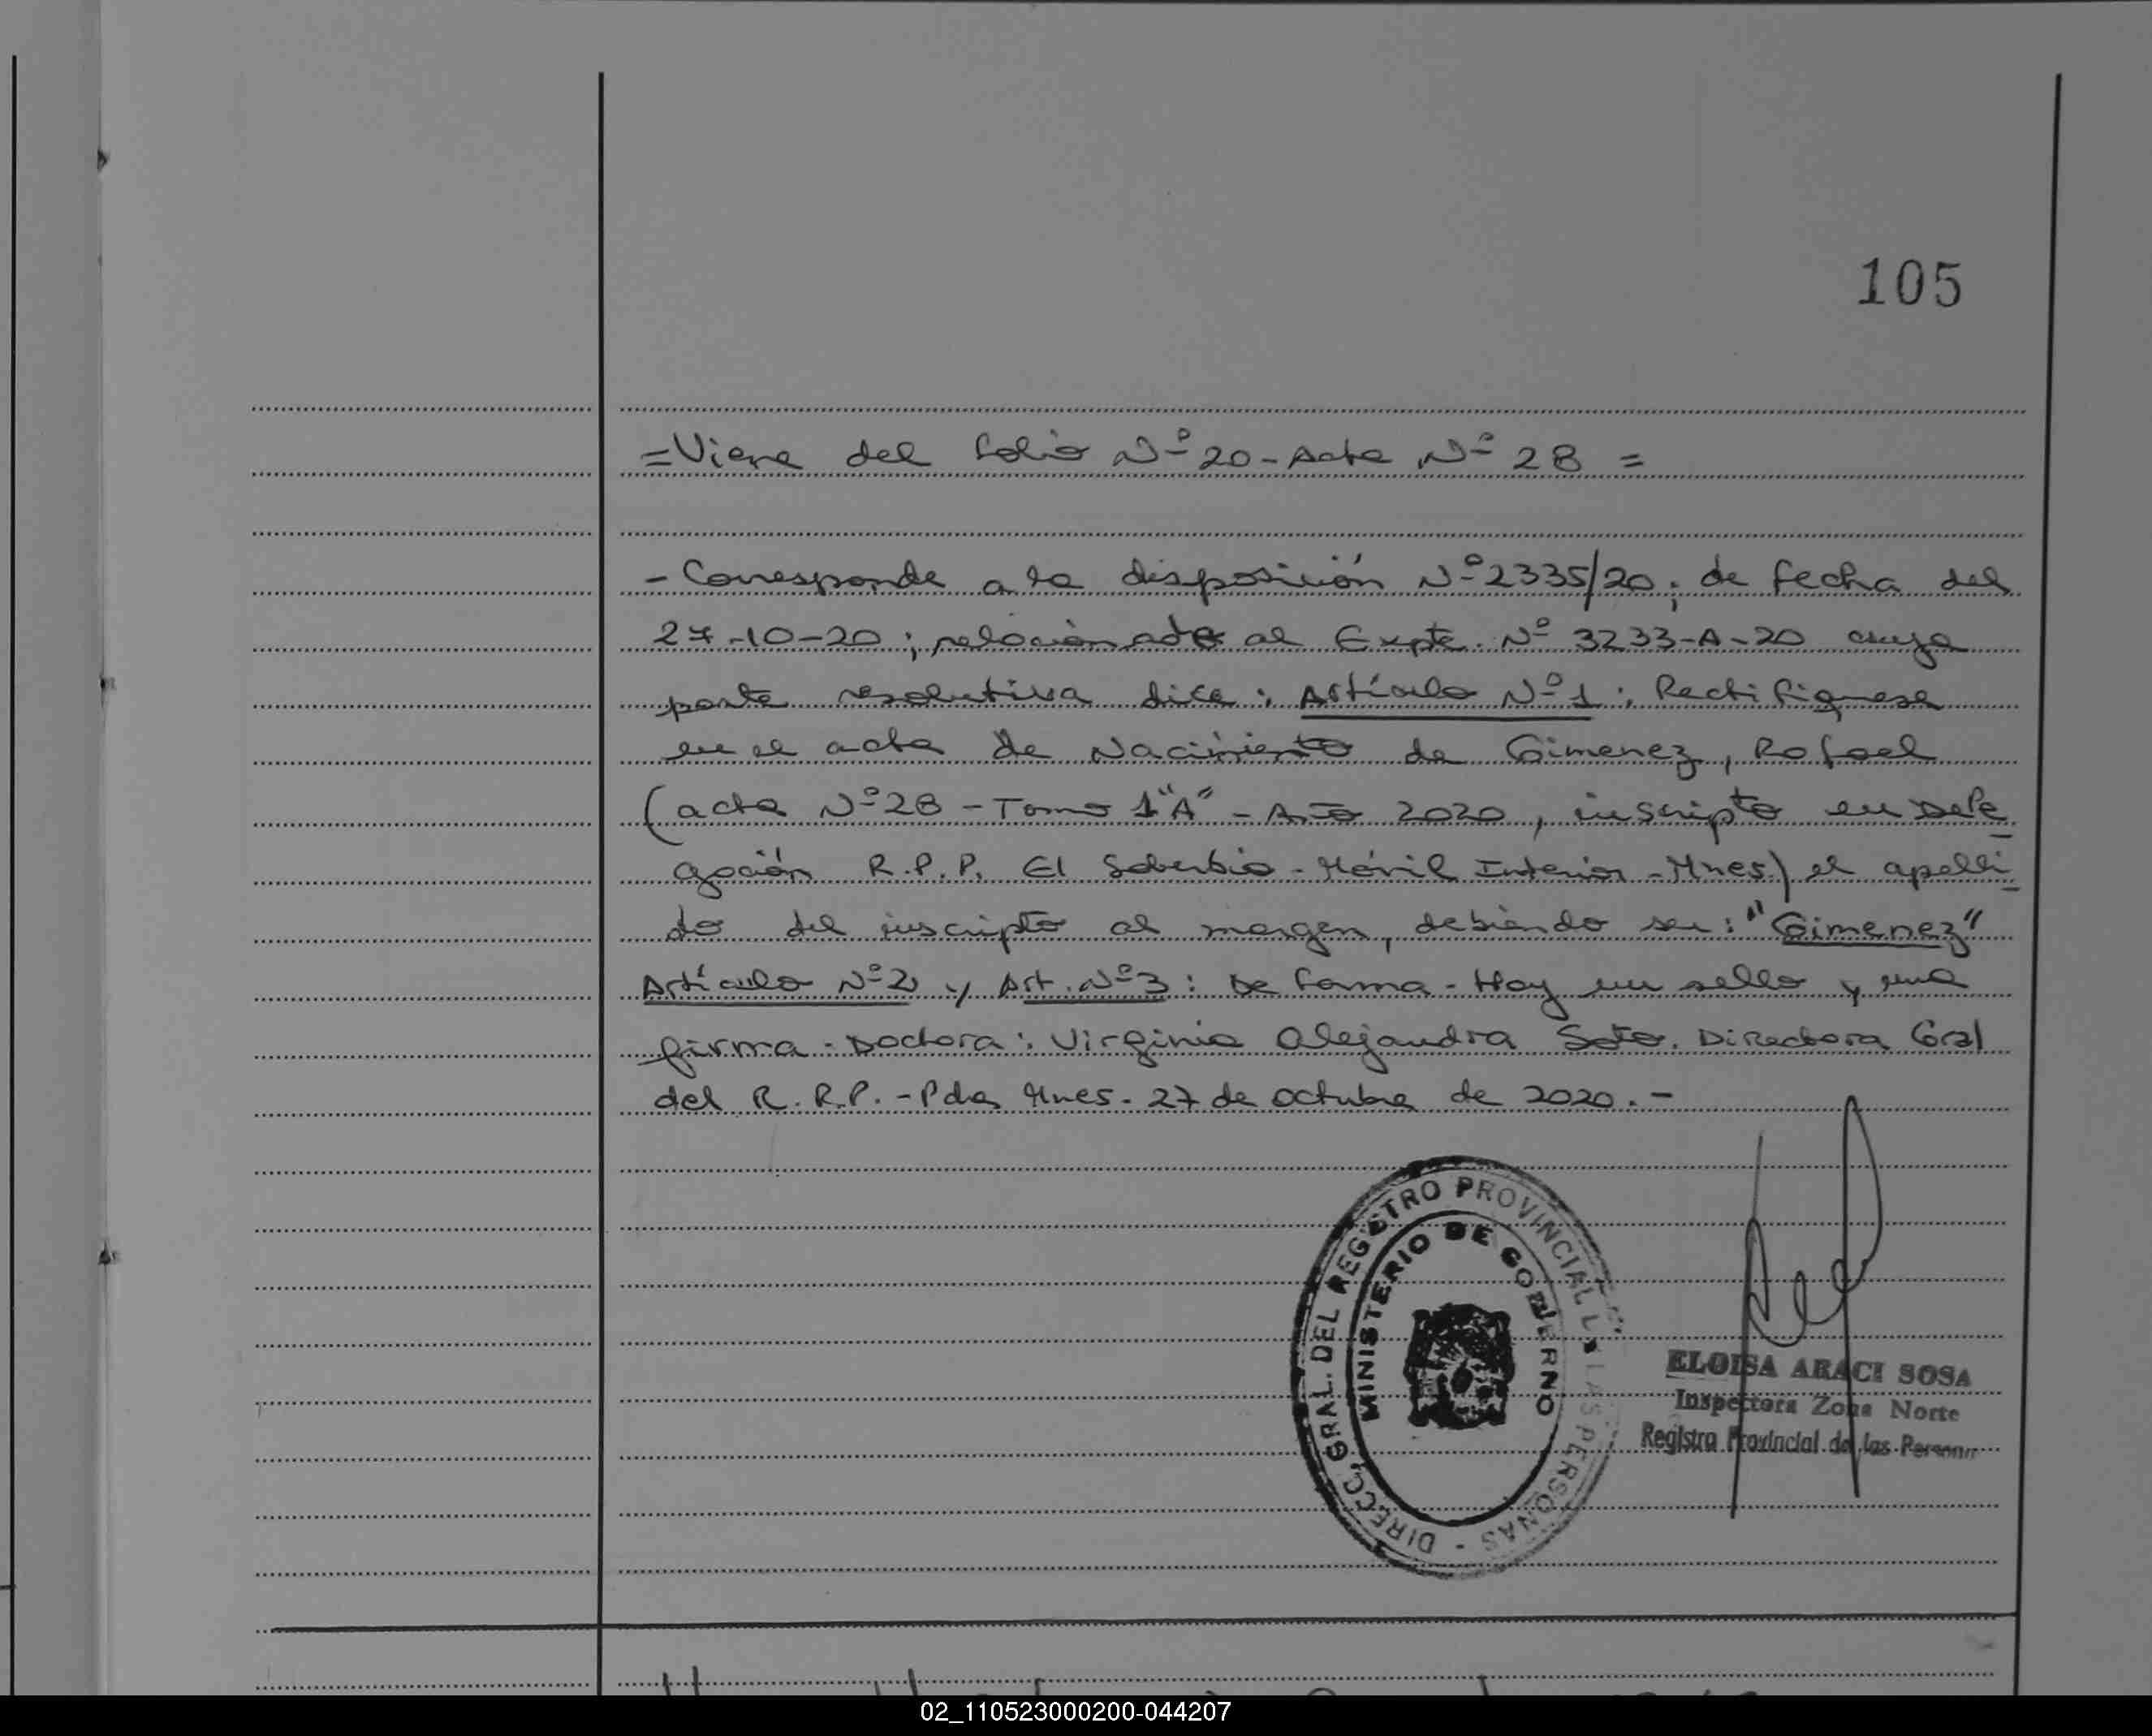 105
=Viene del folio Nº 20 - Acta Nº 28 =
- Corresponde a la disposición Nº 2335/20; de fecha del
27-10-20; relacionado al Expte. Nº 3233-A-20 cuya
parte resolutiva dice: Artículo Nº 1: Rectifiquese
en el acta de Nacimiento de Gimenez, Rafael
(acta Nº 28 - Tomo 1"A" - Año 2020, inscripto en Dele
gación R.P.P. El Soberbio - Móvil Interior - Mnes) el apelli
do del inscripto al margen, debiendo ser: "Gimenez"
Artículo Nº 2 y Art. Nº 3: De forma - Hay un sello y una
firma - Doctora: Virginia Alejandra Soto. Directora Gral
del R.R.P. - Pdas Mnes - 27 de octubre de 2020. -
DIRECC. GRAL. DEL REGISTRO PROVINCIAL DE LAS PERSONAS -
MINISTERIO DE GOBIERNO
ELOISA ARACI SOSA
Inspectora Zona Norte
Registro Provincial de las Personas
02_110523000200-044207